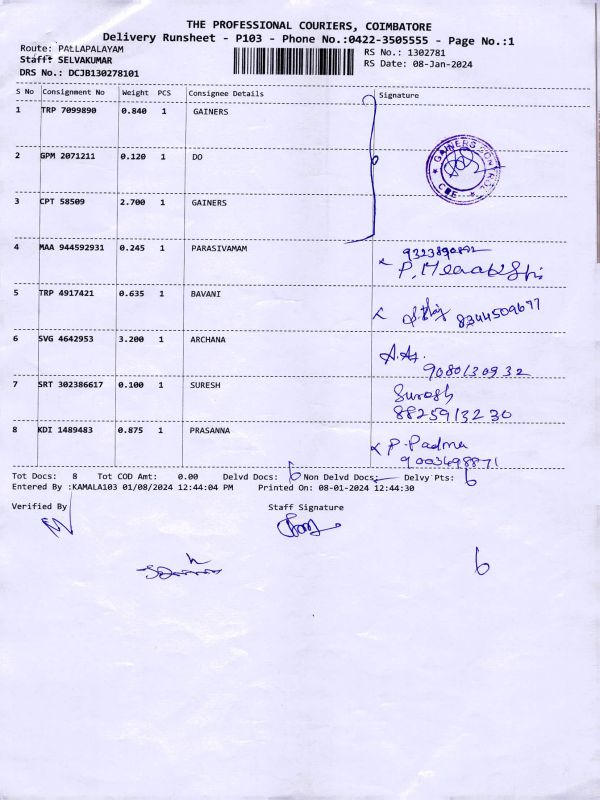 THE PROFESSIONAL COURIERS, COIMBATORE
Delivery Runsheet - P103 - Phone No.:0422-3505555 - Page No.:1
Route: PALLAPALAYAM
RS No.: 1302781
Staff: SELVAKUMAR
RS Date: 08-Jan-2024
DRS No.: DCJB130278101
S No Consignment No Weight PCS Consignee Details Signature
1 TRP 7099890 0.840 1 GAINERS
GAINERS CONTROL
CBE
2 GPM 2071211 0.120 1 DO
3 CPT 58509 2.700 1 GAINERS
4 MAA 944592931 0.245 1 PARASIVAMAM
5 TRP 4917421 0.635 1 BAVANI
8344509677
6 SVG 4642953 3.200 1 ARCHANA
9080130932
7 SRT 302386617 0.100 1 SURESH
Suresh
8825913230
8 KDI 1489483 0.875 1 PRASANNA
P. Padma
9003498871
Tot Docs: 8 Tot COD Amt: 0.00 Delvd Docs: 6 Non Delvd Docs: - Delvy Pts: 6
Entered By :KAMALA103 01/08/2024 12:44:04 PM Printed On: 08-01-2024 12:44:30
Verified By Staff Signature
6